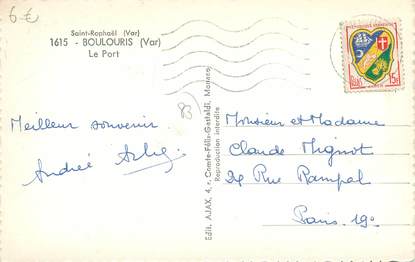 6-€
Saint-Raphaël (Var)
1615 - BOULOURIS (Var)
Le Port
83
Meilleur souvenir
André
Edit. AJAX, 4, r. Comte-Félix-Gastaldi, Monaco
Reproduction interdite
Monsieur et Madame
Claude Mignot
24 Rue Rampal
Paris 19e